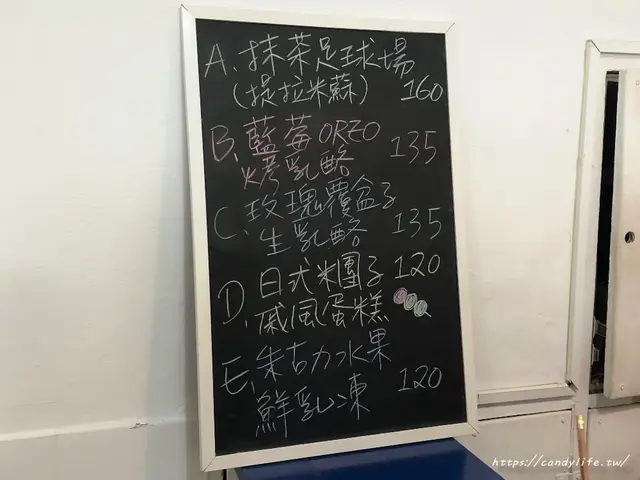 A、抹茶足球場
(提拉米蘇) 160
B、藍莓OREO
烤乳酪 135
C、玫瑰覆盆子
生乳酪 135
D、日式米團子 120
戚風蛋糕
E、朱古力水果
鮮乳凍 120
https://candylife.tw/